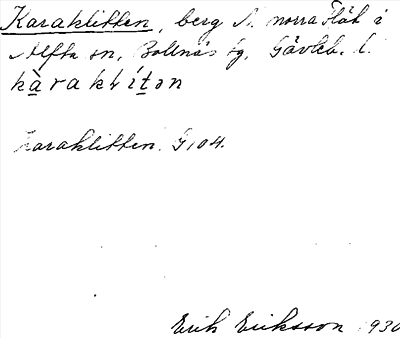 Karaklitten, berg N. norra Flät i
Alfta sn, Bollnäs tg, Gävleb. l.
kàraklítən
Karaklitten. G104.
Erik Eriksson 1930